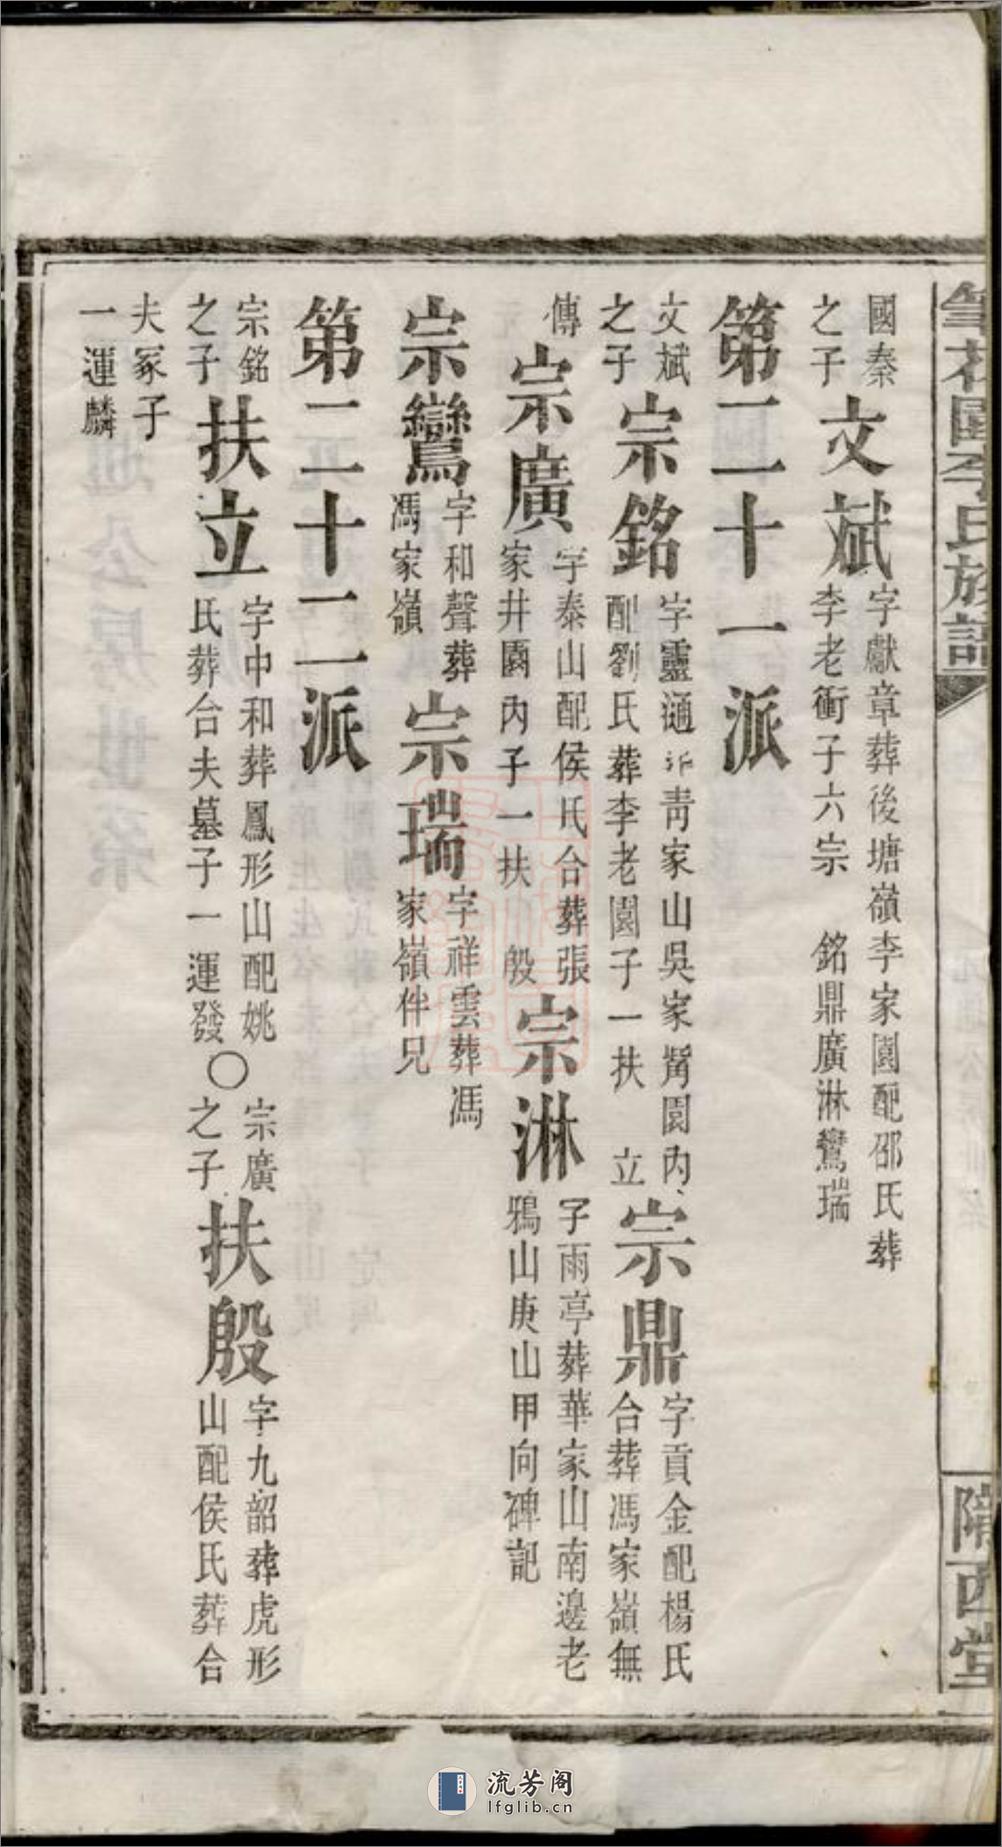 筆花園李氏族譜
隴西堂
國秦之子
文斌
字獻章葬後塘嶺李家園配邵氏葬
李老衝子六宗 銘鼎廣淋鸞瑞
第二十一派
文斌之子
宗銘
字靈通 靑家山吳家嘴園內
配劉氏葬李老園子一扶 立
宗鼎
字貢金配楊氏
合葬馮家嶺無
傳
宗廣
字泰山配侯氏合葬張
家井園內子一扶 殷
宗淋
字雨亭葬華家山南邊老
鴉山庚山甲向碑記
宗鸞
字和聲葬
馮家嶺
宗瑞
字祥雲葬馮
家嶺伴兄
第二十二派
宗銘之子
扶立
字中和葬鳳形山配姚
氏葬合夫墓子一運發
○
宗廣之子
扶殷
字九韶葬虎形
山配侯氏葬合
夫冢子
一運麟
流芳阁
lfglib.cn